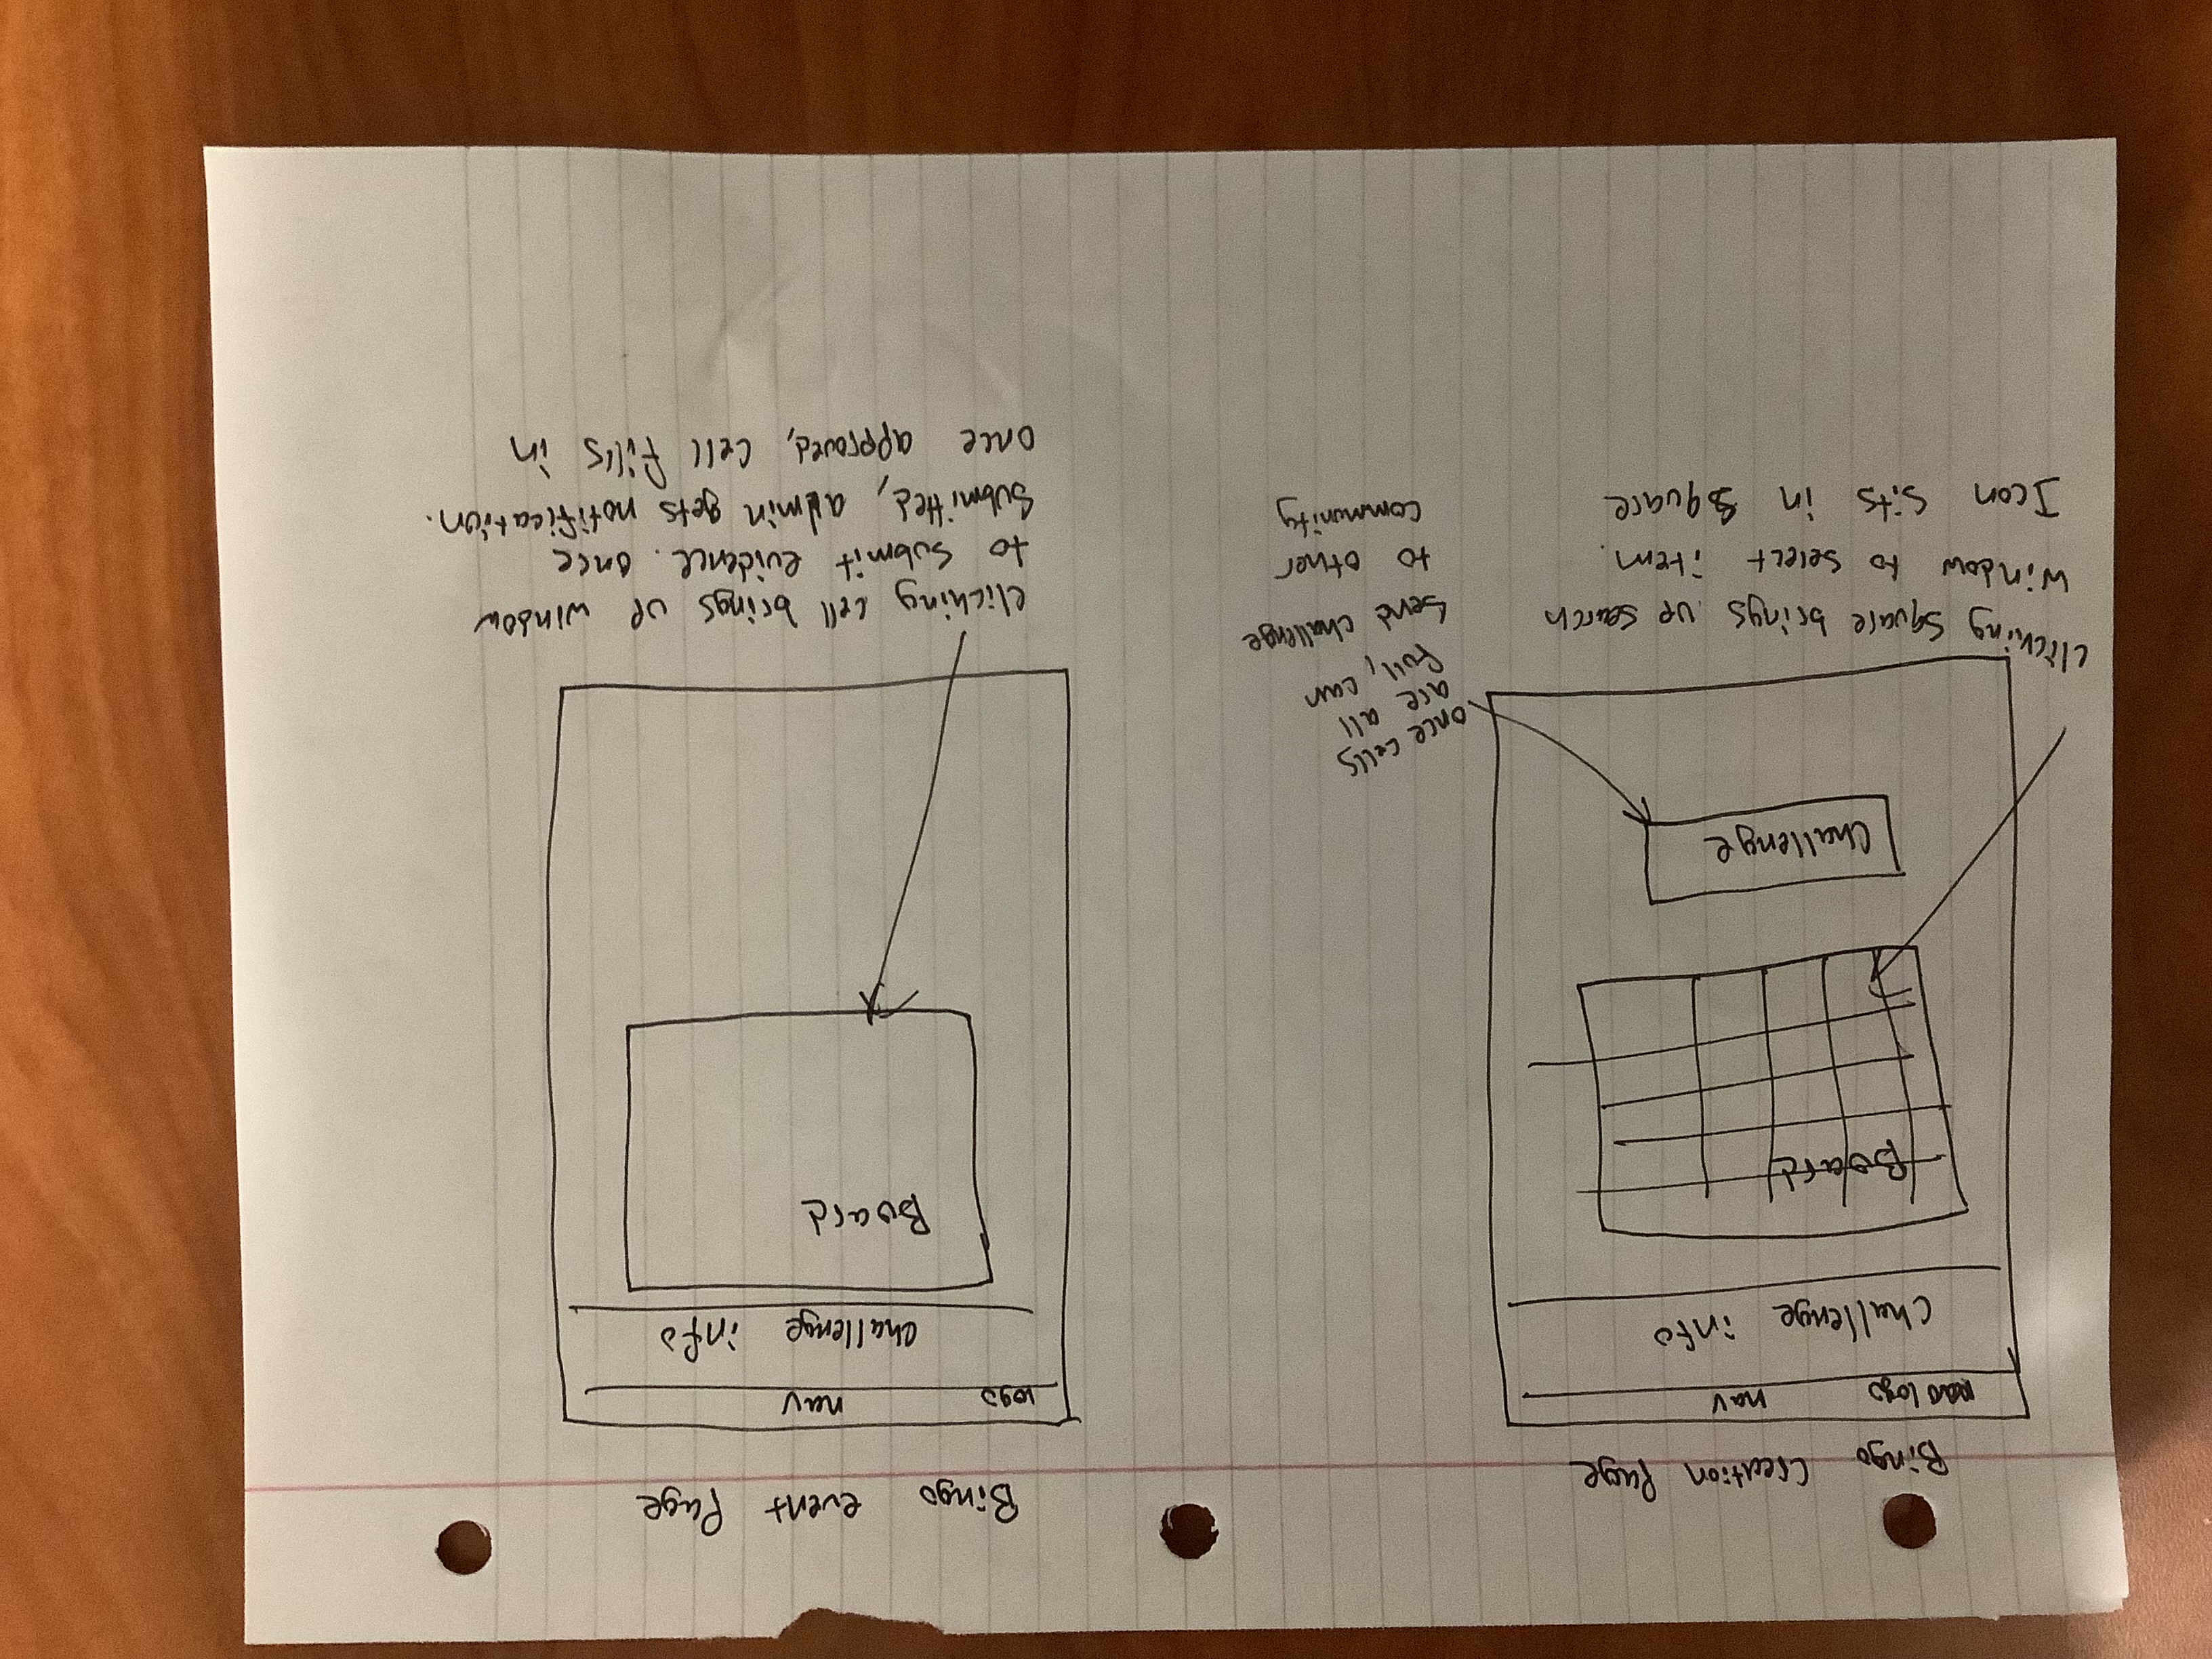 Bingo Creation Page
logo nav
Challenge info
Board
Challenge
clicking square brings up search
window to select item.
Icon sits in square
once cells
are all
full, can
send challenge
to other
community
Bingo event Page
logo nav
challenge info
Board
clicking cell brings up window
to submit evidence. once
submitted, admin gets notification.
once approved, cell fills in